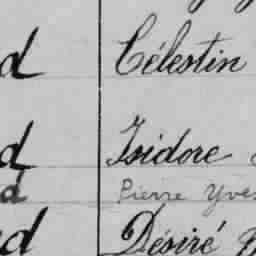 d Célestin
d Isidore
d Pierre Yves
d Désiré